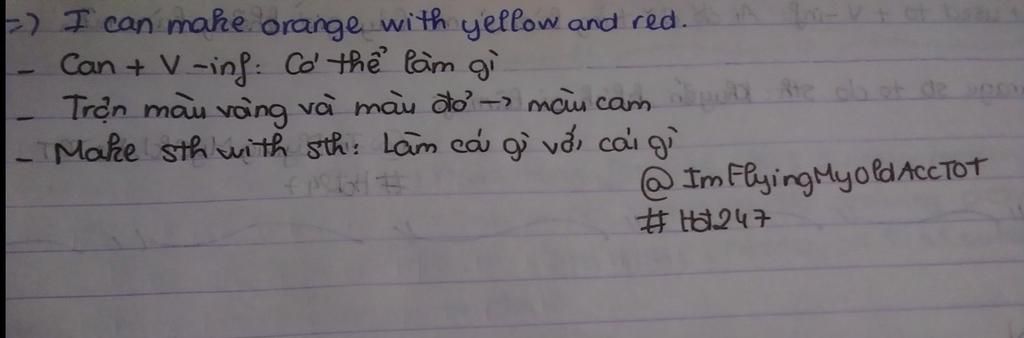 => I can make orange with yellow and red.
- Can + V-inf: Có thể làm gì
- Trộn màu vàng và màu đỏ -> màu cam
- Make sth with sth: Làm cái gì với cái gì
@ImFlyingMyOldAccTOT
#Hd247